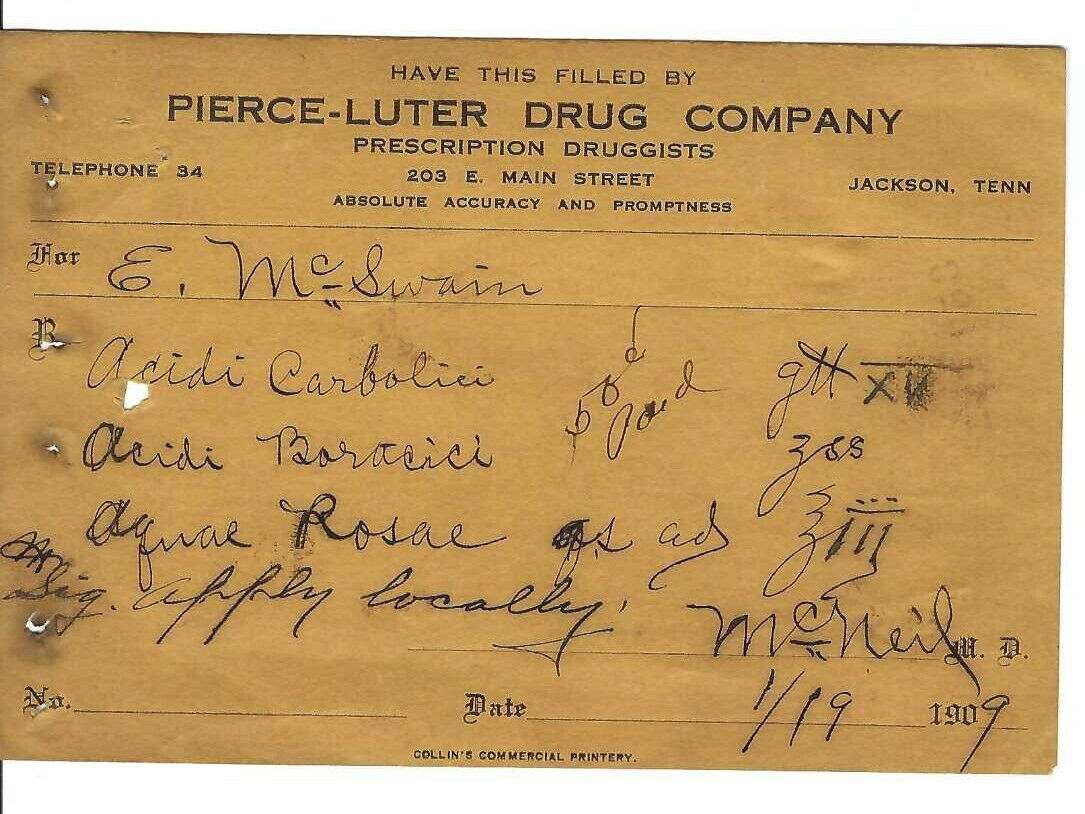 HAVE THIS FILLED BY
PIERCE-LUTER DRUG COMPANY
PRESCRIPTION DRUGGISTS
TELEPHONE 34
203 E. MAIN STREET
JACKSON, TENN
ABSOLUTE ACCURACY AND PROMPTNESS
For E. McSwain
℞
Acidi Carbolici gtt
50c paid
Acidi Boracici ʒss
Aquae Rosae qs ad ℥iii
Sig. Apply locally.
McNeil M. D.
No. Date 1/19 1909
COLLIN'S COMMERCIAL PRINTERY.